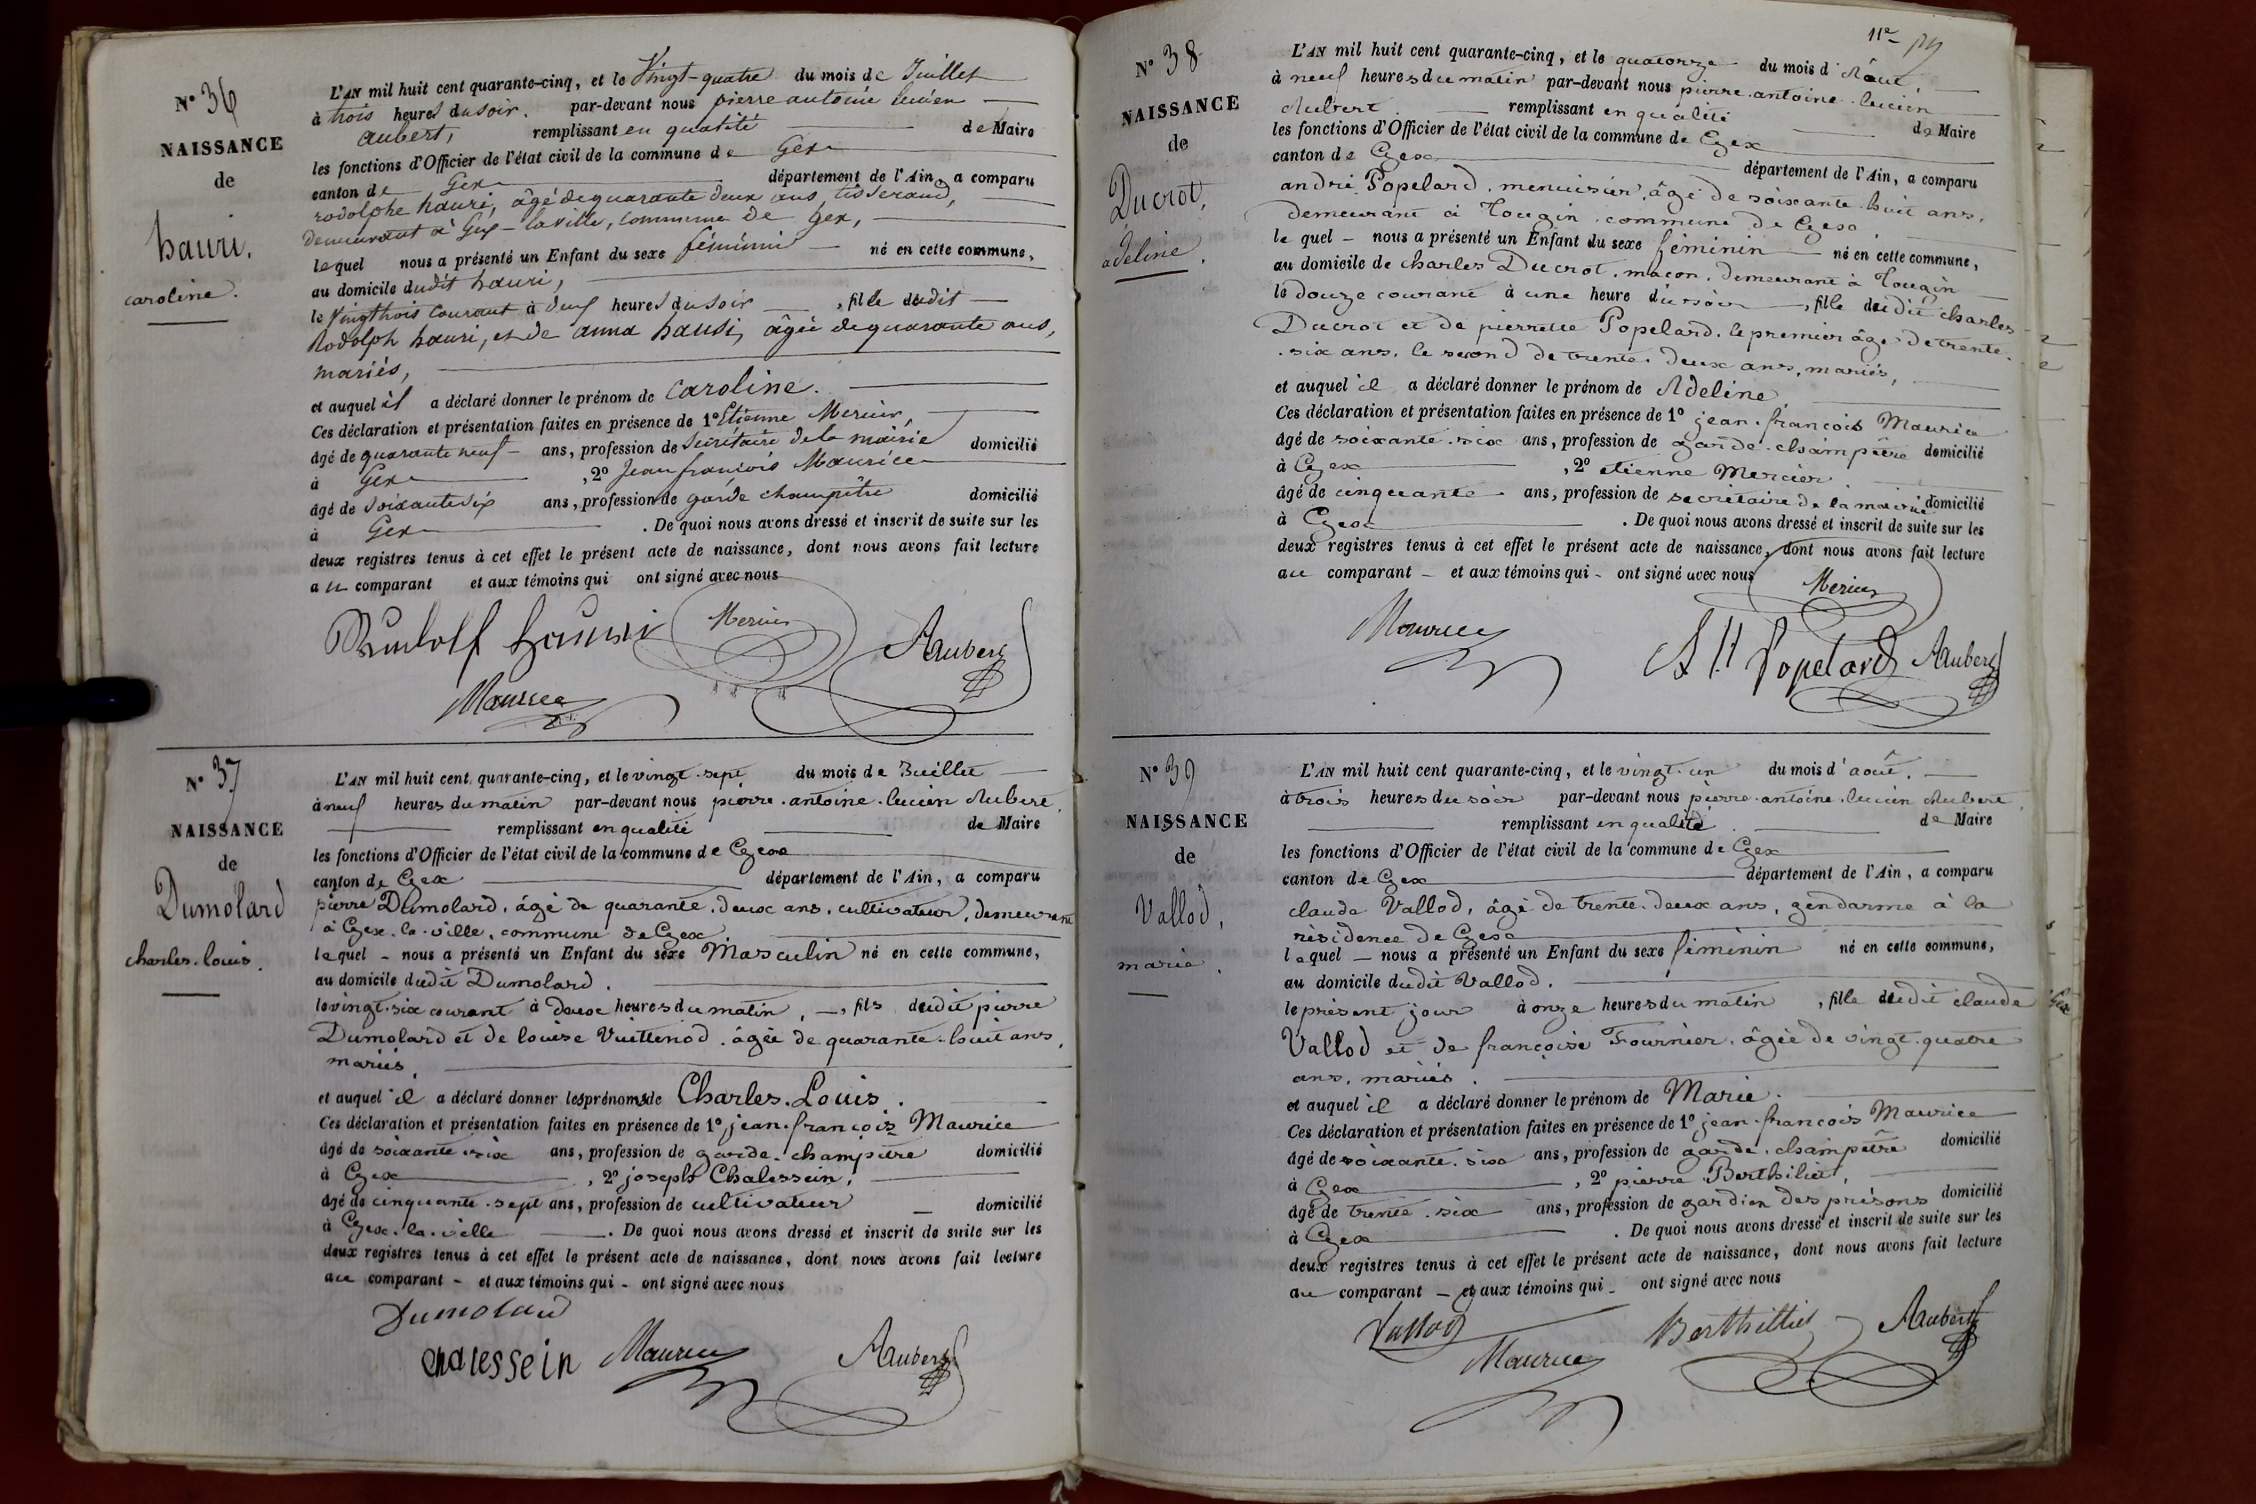 N° 36
NAISSANCE
de
hauri.
caroline.
L'AN mil huit cent quarante-cinq, et le Vingt-quatre du mois de Juillet
à trois heures du soir. par-devant nous pierre antoine lucien
aubert, remplissant en qualité de Maire
les fonctions d'Officier de l'état civil de la commune de Gex
canton de Gex département de l'Ain, a comparu
rodolphe hauri, âgé de quarante deux ans, tisserand,
demeurant à Gex-la ville, commune de Gex,
lequel nous a présenté un Enfant du sexe féminin né en cette commune,
au domicile dudit hauri,
le vingt trois courant à heures du soir, fille dudit
Rodolph hauri, et de anna , âgée de quarante ans,
mariés,
et auquel il a déclaré donner le prénom de Caroline.
Ces déclaration et présentation faites en présence de 1° Etienne Mercier,
âgé de quarante neuf ans, profession de Secrétaire de la mairie domicilié
à Gex, 2° Jean françois Maurice
âgé de soixante six ans, profession de garde champêtre domicilié
à Gex. De quoi nous avons dressé et inscrit de suite sur les
deux registres tenus à cet effet le présent acte de naissance, dont nous avons fait lecture
au comparant et aux témoins qui ont signé avec nous
Rudolf Hauri Mercier AAubert
Maurice
N° 37
NAISSANCE
de
Dumolard
charles.louis.
L'AN mil huit cent quarante-cinq, et le vingt.sept du mois de Juillet
à neuf heures du matin par-devant nous pierre.antoine.lucien Aubert,
remplissant en qualité de Maire
les fonctions d'Officier de l'état civil de la commune de Gex
canton de Gex département de l'Ain, a comparu
pierre Dumolard, âgé de quarante.deux ans, cultivateur, demeurant
à Gex.la.ville, commune de Gex,
lequel - nous a présenté un Enfant du sexe Masculin né en cette commune,
au domicile dudit Dumolard.
le vingt.six courant à deux heures du matin, fils dudit pierre
Dumolard et de louise Vuittenod, âgée de quarante.huit ans,
mariés,
et auquel il a déclaré donner les prénoms de Charles.Louis.
Ces déclaration et présentation faites en présence de 1° jean.françois Maurice
âgé de soixante.six ans, profession de garde.champêtre domicilié
à Gex, 2° joseph Chalessein,
âgé de cinquante.sept ans, profession de cultivateur domicilié
à Gex.la.ville. De quoi nous avons dressé et inscrit de suite sur les
deux registres tenus à cet effet le présent acte de naissance, dont nous avons fait lecture
au comparant - et aux témoins qui - ont signé avec nous
Dumolard
chalessein Maurice AAubert
11e
N° 38
NAISSANCE
de
Ducrot,
adeline.
L'AN mil huit cent quarante-cinq, et le quatorze du mois d'Août,
à neuf heures du matin par-devant nous pierre.antoine.lucien
Aubert remplissant en qualité de Maire
les fonctions d'Officier de l'état civil de la commune de Gex
canton de Gex département de l'Ain, a comparu
andré Popelard, menuisier, âgé de soixante.huit ans,
demeurant à Tougin, commune de Gex,
lequel - nous a présenté un Enfant du sexe féminin né en cette commune,
au domicile de charles Ducrot, maçon, demeurant à Tougin
le douze courant à une heure du soir, fille dudit charles
Ducrot et de pierrette Popelard, le premier âgé de trente.
six ans, le second de trente.deux ans, mariés,
et auquel il a déclaré donner le prénom de Adeline.
Ces déclaration et présentation faites en présence de 1° jean.françois Maurice
âgé de soixante.six ans, profession de garde.champêtre domicilié
à Gex, 2° etienne Mercier
âgé de cinquante ans, profession de secrétaire de la mairie domicilié
à Gex. De quoi nous avons dressé et inscrit de suite sur les
deux registres tenus à cet effet le présent acte de naissance, dont nous avons fait lecture
au comparant - et aux témoins qui - ont signé avec nous
Mercier
Maurice Popelard AAubert
N° 39
NAISSANCE
de
Vallod,
marie.
L'AN mil huit cent quarante-cinq, et le vingt.un du mois d'août.
à trois heures du soir par-devant nous pierre.antoine.lucien Aubert,
remplissant en qualité de Maire
les fonctions d'Officier de l'état civil de la commune de Gex
canton de Gex département de l'Ain, a comparu
claude Vallod, âgé de trente.deux ans, gendarme à la
résidence de Gex
lequel - nous a présenté un Enfant du sexe féminin né en cette commune,
au domicile dudit Vallod.
le présent jour à onze heures du matin, fille dudit claude
Vallod et de françoise Fournier, âgée de vingt.quatre
ans, mariés.
et auquel il a déclaré donner le prénom de Marie.
Ces déclaration et présentation faites en présence de 1° jean.françois Maurice
âgé de soixante.six ans, profession de garde.champêtre domicilié
à Gex, 2° pierre Berthilier,
âgé de trente.six ans, profession de gardien des prisons domicilié
à Gex. De quoi nous avons dressé et inscrit de suite sur les
deux registres tenus à cet effet le présent acte de naissance, dont nous avons fait lecture
au comparant - et aux témoins qui - ont signé avec nous
Vallod Berthillier AAubert
Maurice